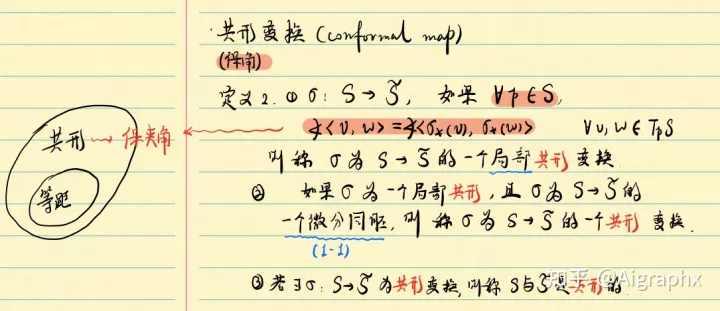 ·共形变换(conformal map)
(保角)
定义2.① σ: S→S̃, 如果 ∀p∈S,
∡<v, w>=∡<σ*(v), σ*(w)> ∀v,w∈TpS
则称 σ为 S→S̃ 的一个局部共形变换.
② 如果σ为一个局部共形, 且 σ为S→S̃的
一个微分同胚, 则称σ为S→S̃的一个共形变换.
(1-1)
③若∃σ: S→S̃为共形变换,则称 S与S̃是共形的.
共形→保夹角
等距
知乎 @Aigraphx